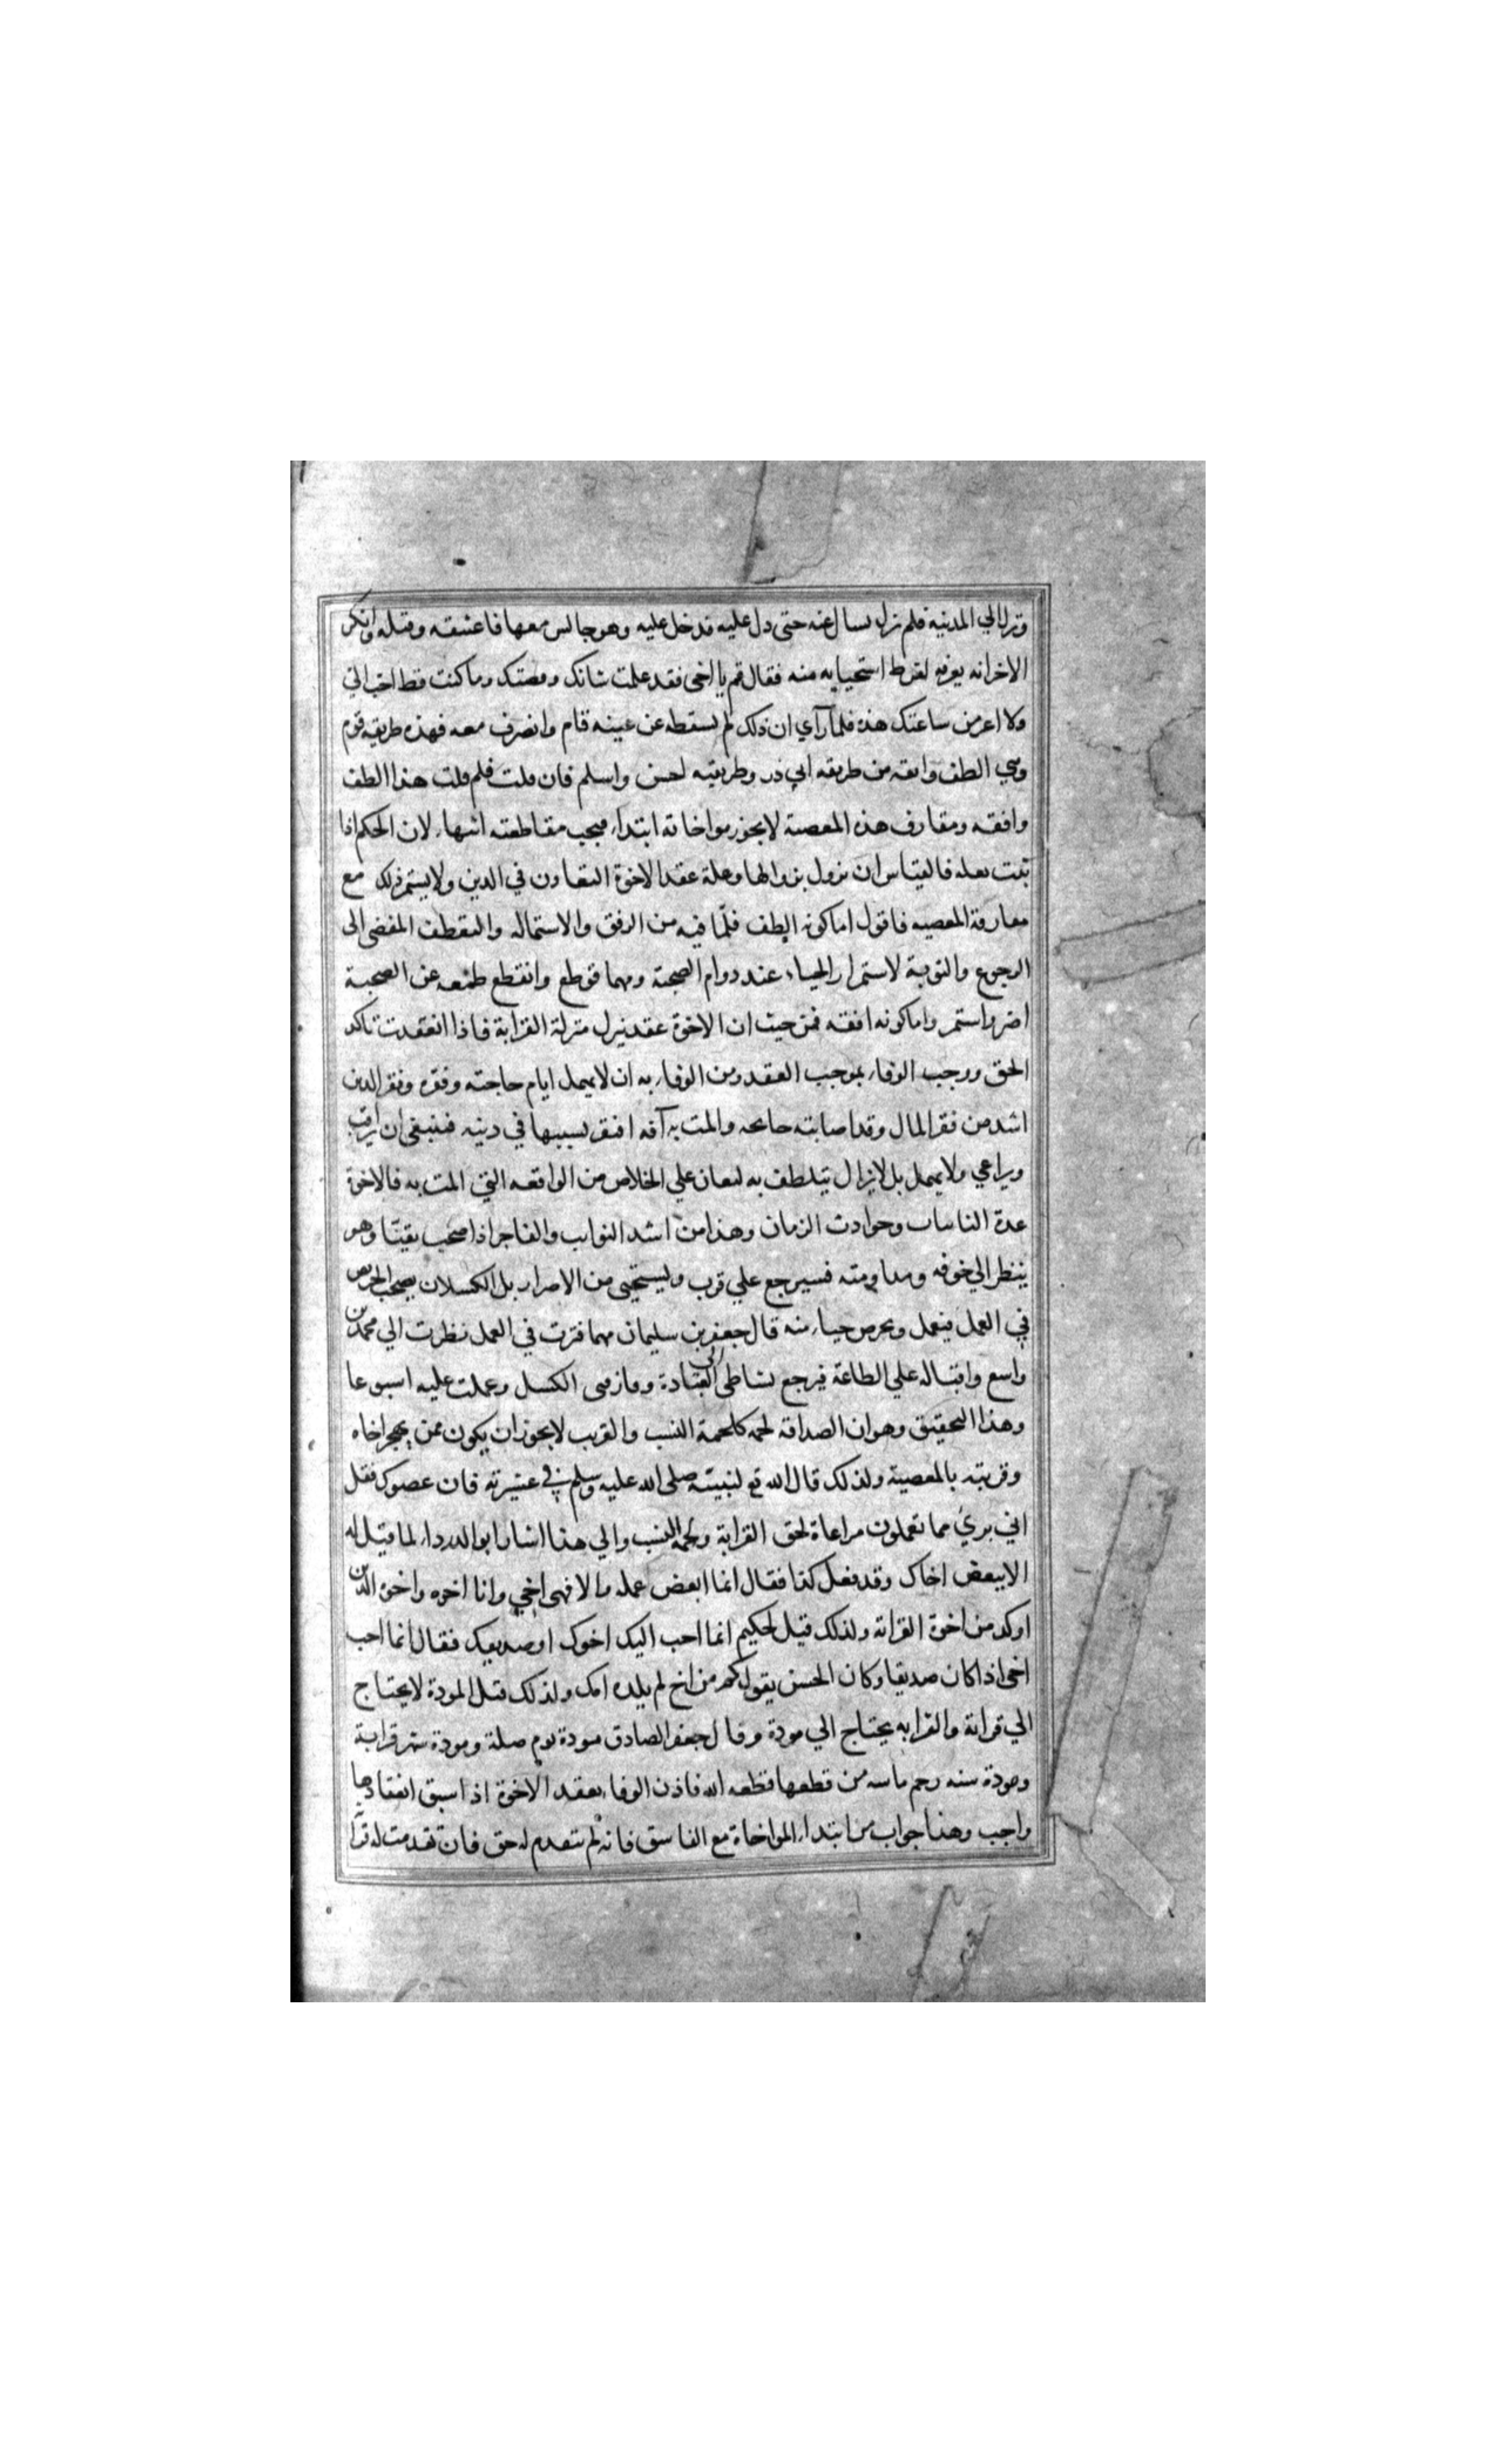 ونزل الي المدينة فلم يزل يسال عنه حتى دل عليه فدخل عليه وهو جالس معها فاعتنقه وقبله وانكر
الاخر انه يعرفه لفرط استحيايه منه فقال قم يا اخي فقد علمت شانك وقصتك وما كنت قط احب الي
ولا اعز من ساعتك هذه فلما رآي ان ذلك لم يسقطه عن عينه قام وانصرف معه فهذه طريقه قوم
وهي الطف وافقه من طريقه ابي ذر وطريقته احسن واسلم فان قلت فلم قلت هذا الطف
وافقه ومقارف هذه المعصية لا يجوز مواخاته ابتداء فيجب مقاطعته انتهاء لان الحكم اذا
ثبت بعله فالقياس ان يزول بزوالها وعلة عقد الاخوة التعاون في الدين ولا يستمر ذلك مع
مقارفة المعصيه فاقول اما كونه الطف فلما فيه من الرفق والاستماله والتعطف المفضي الى
الرجوع والتوبة لاستمرار الحياء عند دوام الصحبة ومهما قوطع وانقطع طمعه عن الصحبة
اصر واستمر واما كونه افقه فمن حيث ان الاخوة عقد ينزل منزلة القرابة فاذا انعقدت تاكد
الحق ووجب الوفاء بموجب العقد ومن الوفاء به ان لا يهمل ايام حاجته وفقره وفقر الدين
اشد من فقر المال وقد اصابته جايحه والمت به آفه افتقر بسببها في دينه فينبغي ان يراقب
ويراعي ولا يهمل بل لا يزال يتلطف به ليعان علي الخلاص من الواقعه التي المت به فالاخوة
عدة النايبات وحوادث الزمان وهذا من اشد النوايب والفاجر اذا صحب تقيا وهو
ينظر الي خوفه ومداومته فسيرجع علي قرب ويستحيى من الاصرار بل الكسلان يصحب الحريص
في العمل فيعمل ويحرص حياء منه قال جعفر بن سليمان مهما فترت في العمل نظرت الي محمد بن
واسع واقباله علي الطاعة فيرجع نشاطي الى العبادة وفارقنى الكسل وعملت عليه اسبوعا
وهذا التحقيق وهو ان الصداقه لحمه كلحمة النسب والقريب لا يجوز ان يكون ممن يهجر اخاه
وقريبه بالمعصية ولذلك قال الله تع لنبيه صلى الله عليه وسلم في عشيرته فان عصوك فقل
اني بري مما تعملون مراعاة لحق القرابة ولحمة النسب والي هذا اشار ابو الدرداء لما قيل له
الا تبغض اخاك وقد فعل كذا فقال انما ابغض عمله والا فهو اخي وانا اخوه واخوة الدين
اوكد من اخوة القرابة ولذلك قيل لحكيم انما احب اليك اخوك او صديقك فقال انما احب
اخي اذا كان صديقا وكان الحسن يقول كم من اخ لم يلده امك ولذلك قيل المودة لا يحتاج
الي قرابة والقرابه يحتاج الي مودة وقال جعفر الصادق مودة يوم صلة ومودة شهر قرابة
ومودة سنه رحم ماسه من قطعها قطعه الله فاذن الوفاء بعقد الاخوة اذا سبق انعقادها
واجب وهذا جواب من ابتداء المواخاة مع الفاسق فانه لم يتقدم له حق فان تقدمت له قرا